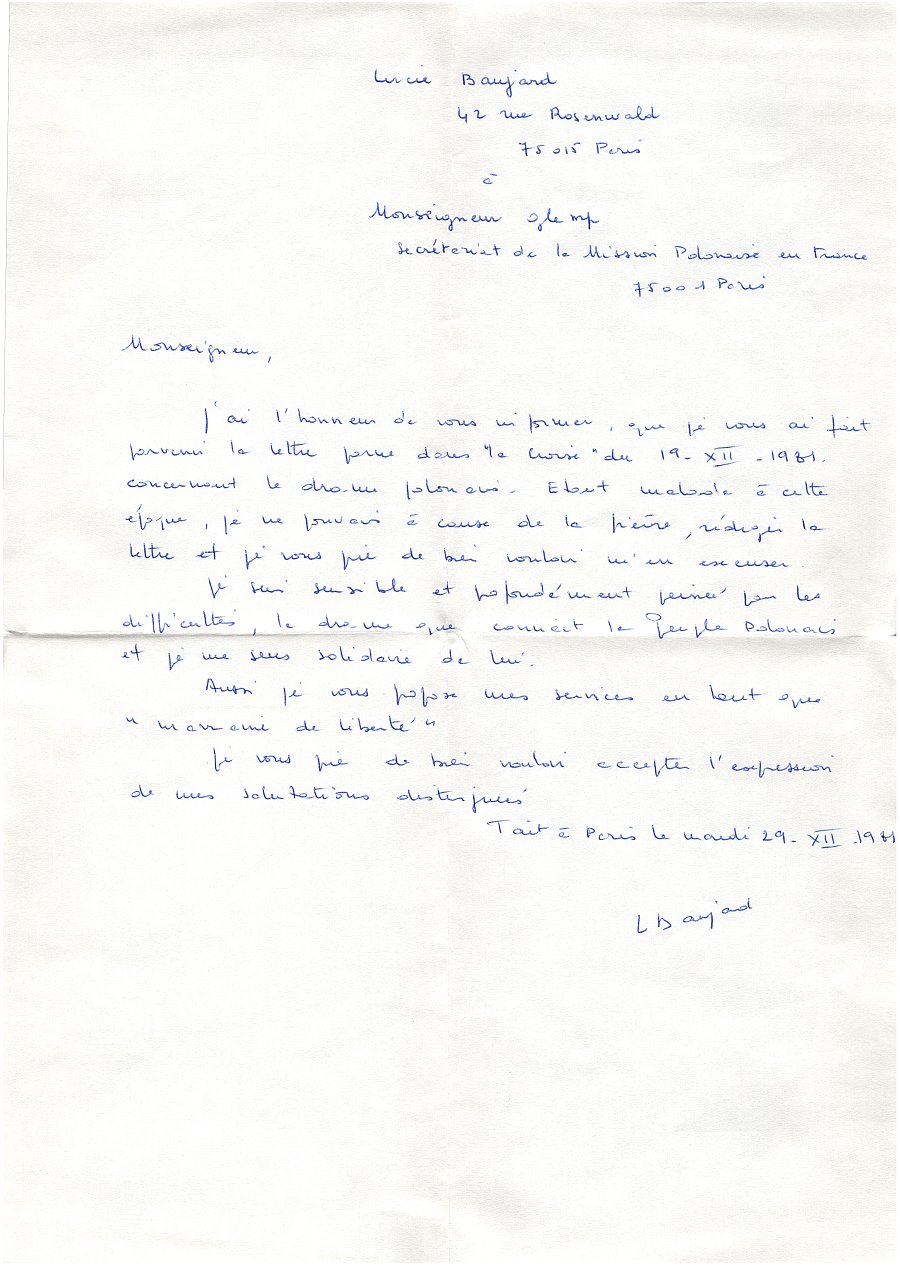 Lucie Baujard
42 rue Rosenwald
75015 Paris
à
Monseigneur Glemp
Secrétariat de la Mission Polonaise en France
75001 Paris
Monseigneur,
J'ai l'honneur de vous informer, que je vous ai fait
parvenir la lettre parue dans "la Croix" du 19-XII-1981.
concernant le drame polonais. Etant malade à cette
époque, je ne pouvais à cause de la fièvre, rédiger la
lettre et je vous prie de bien vouloir m'en excuser.
Je suis sensible et profondément peinée par les
difficultés, le drame que connaît le Peuple Polonais
et je me sens solidaire de lui.
Aussi je vous propose mes services en tant que
"marraine de liberté"
Je vous prie de bien vouloir accepter l'expression
de mes salutations distinguées
Fait à Paris le mardi 29-XII-1981
L Baujard